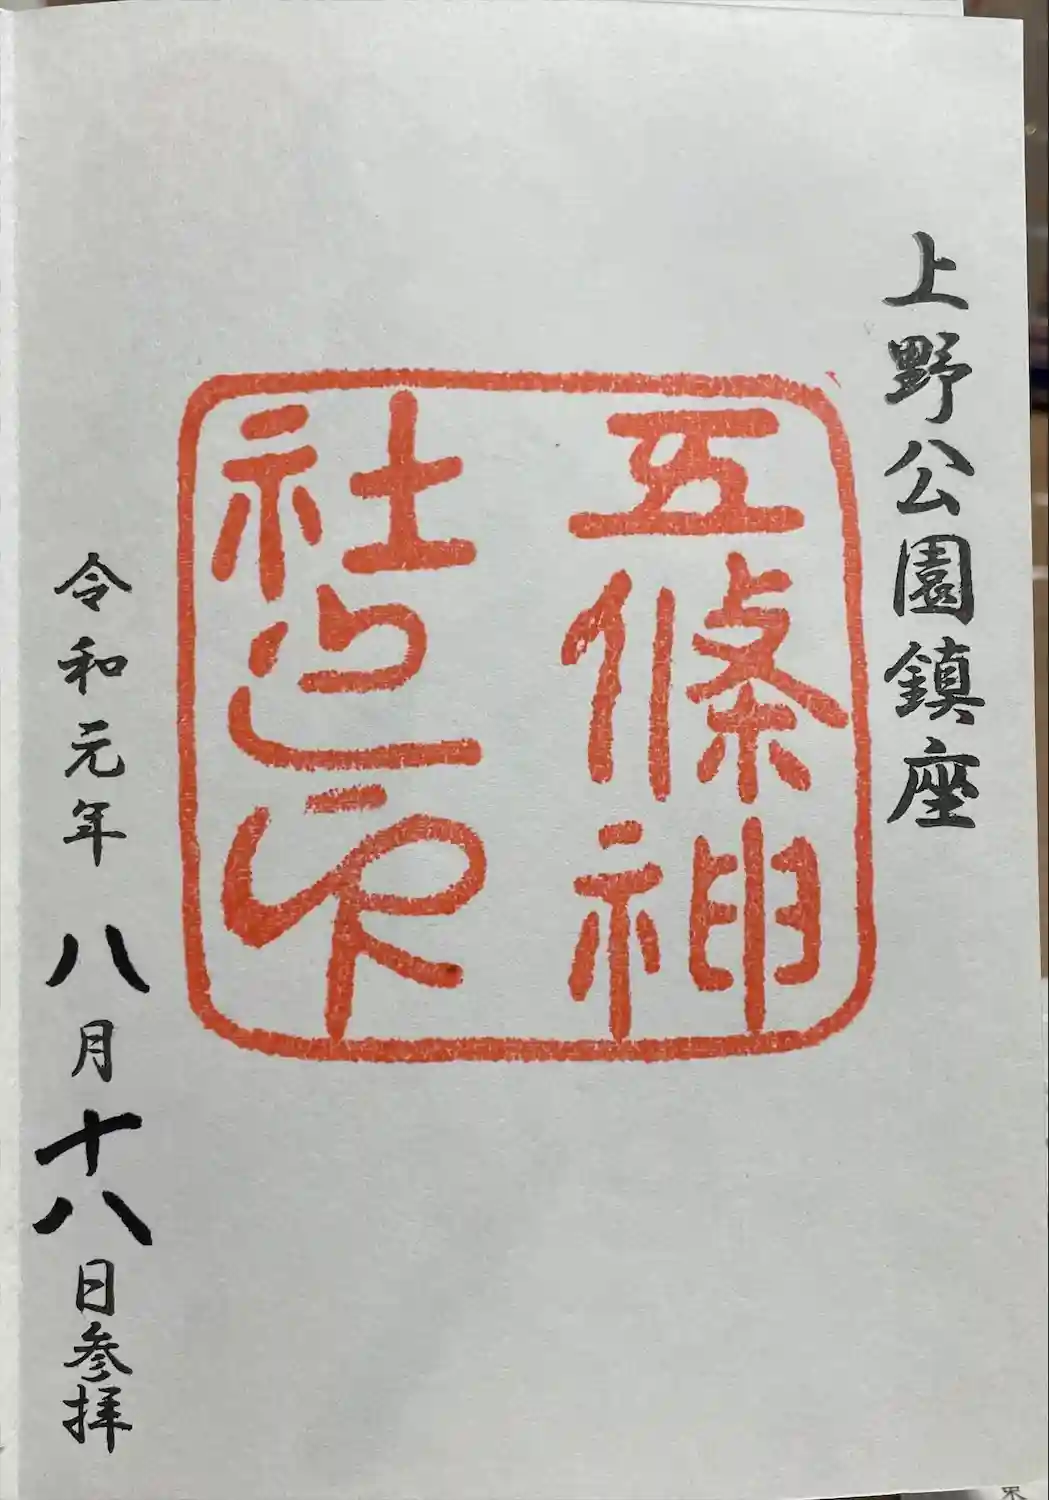 上野公園鎮座
五條神
社之印
令和元年八月十八日参拝